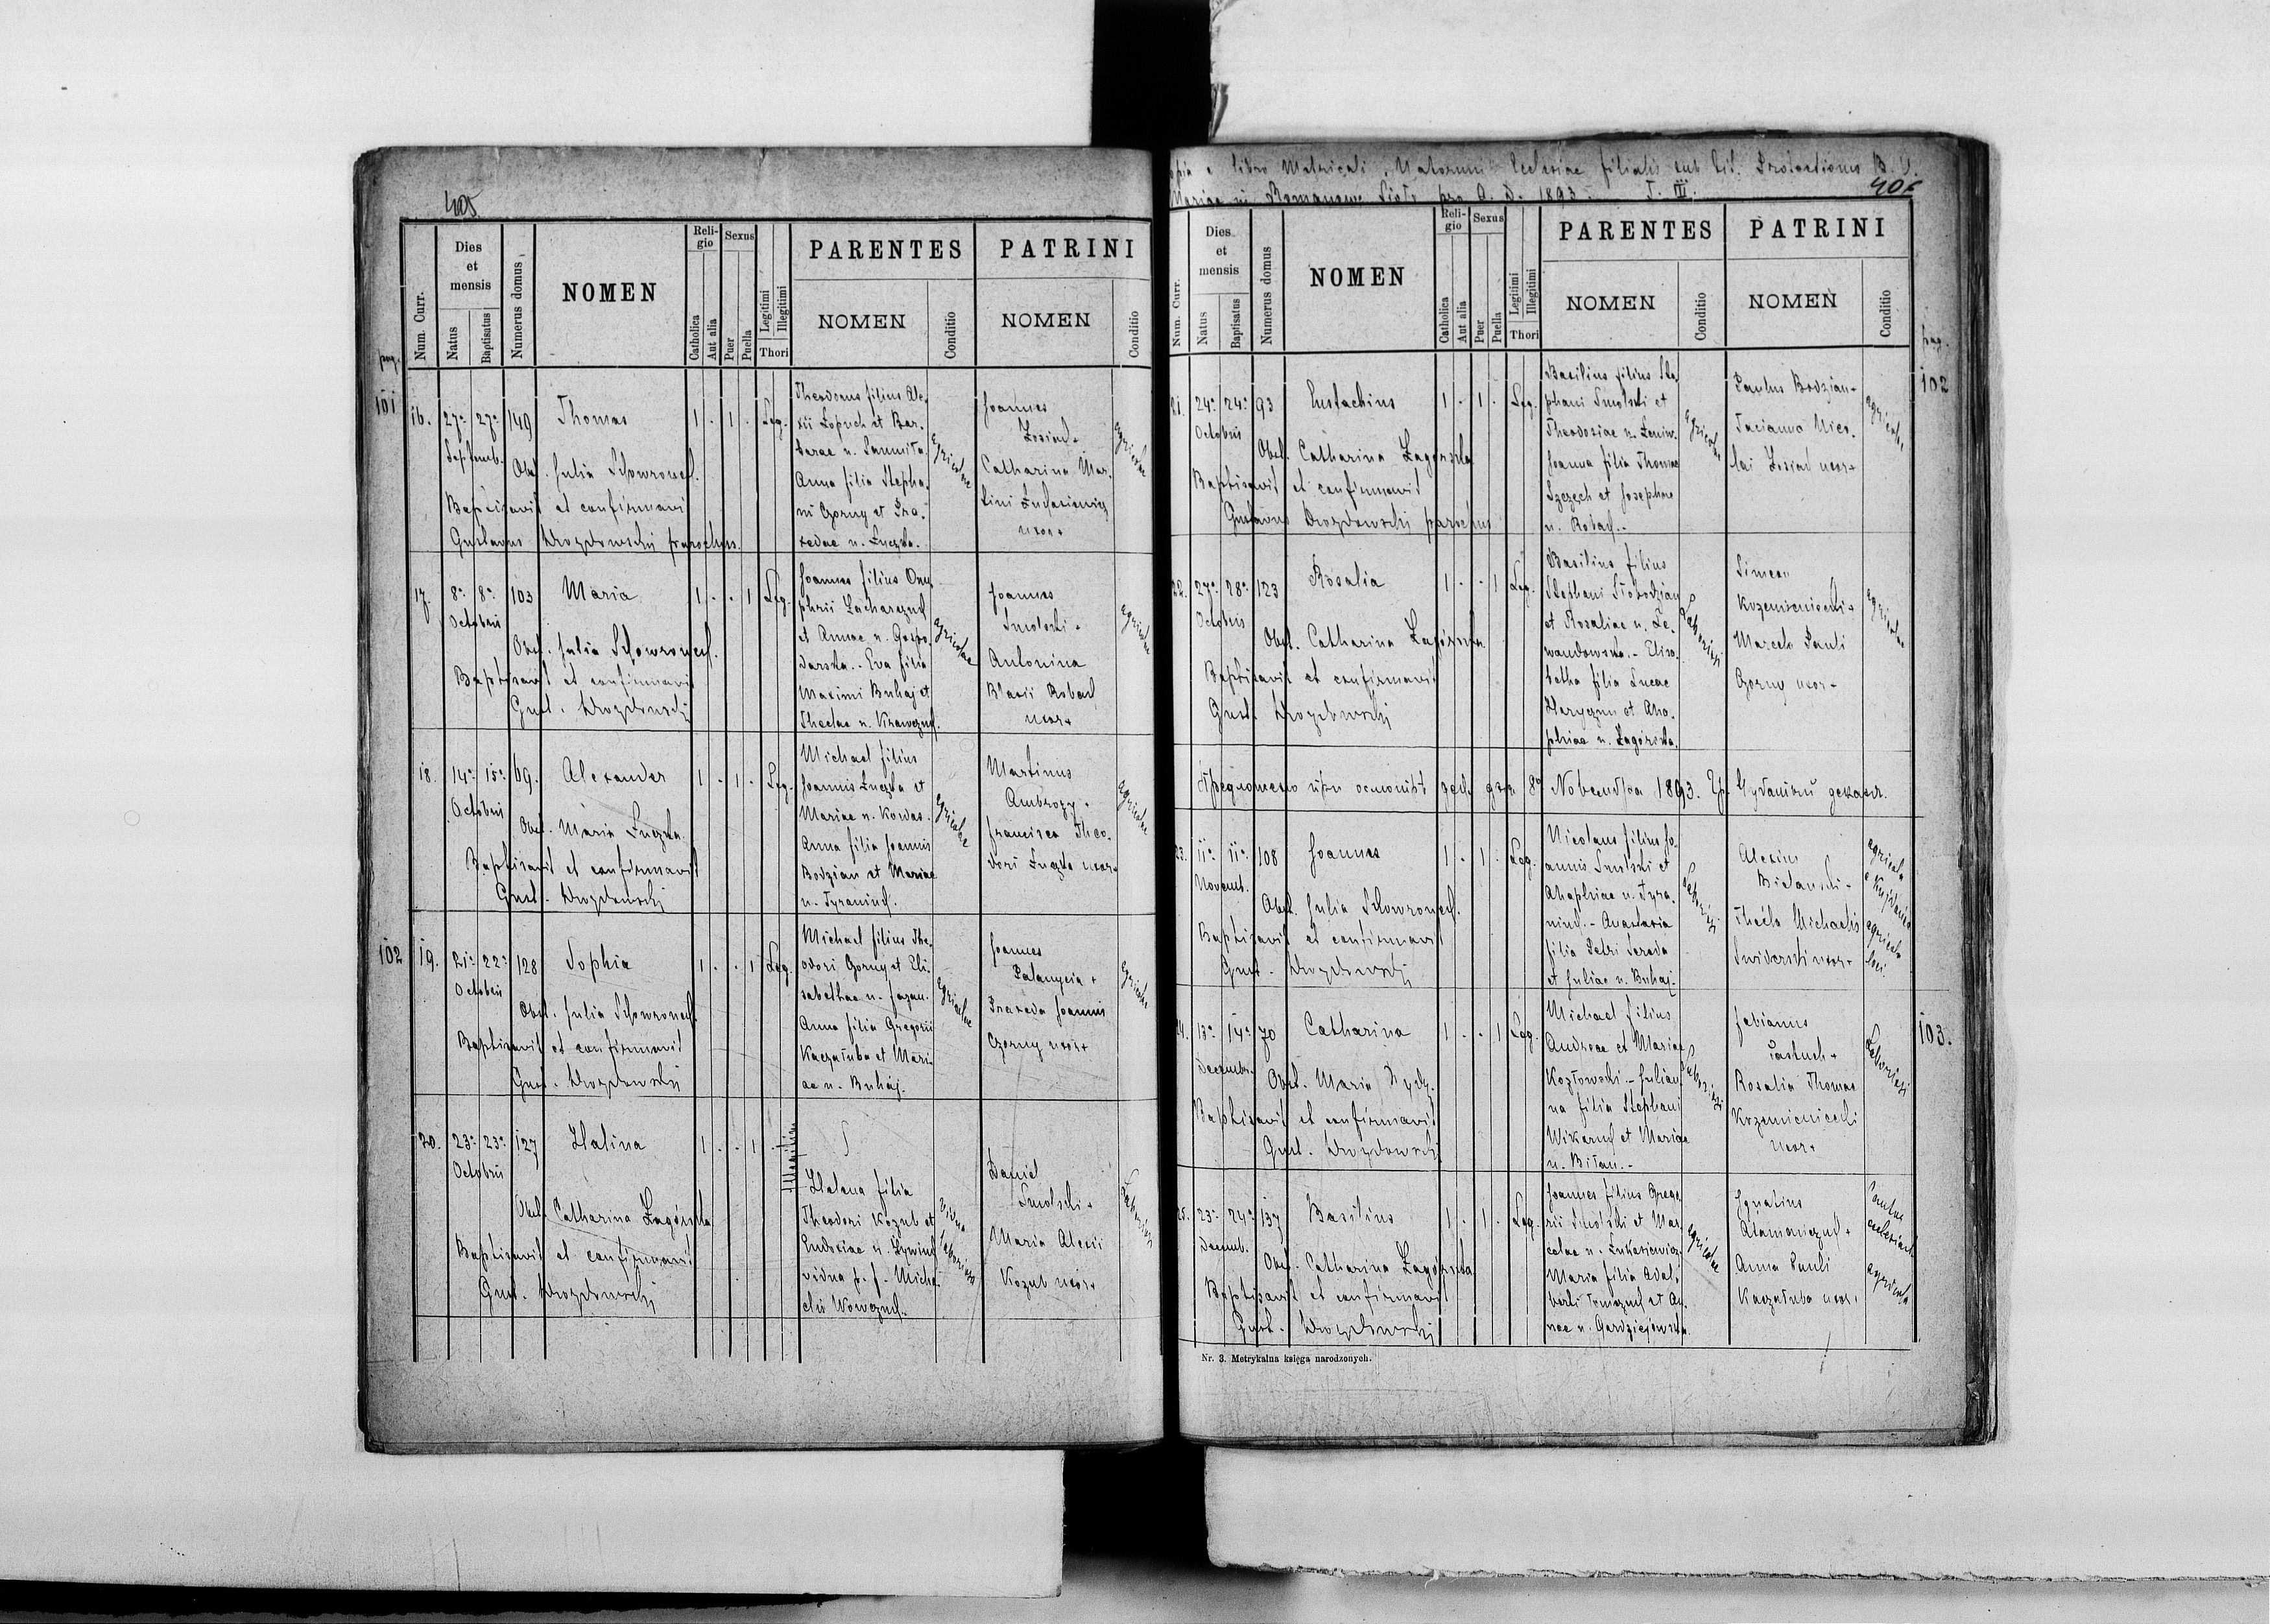 405
Num. Curr.
Dies et mensis
Natus
Baptisatus
Numerus domus
NOMEN
Religio
Catholica
Aut alia
Sexus
Puer
Puella
Legitimi
Illegitimi
Thori
PARENTES
NOMEN
Conditio
PATRINI
NOMEN
Conditio
pag.
101
16. 27a 27a 149 Thomas 1 . 1 . Leg.
Septemb.
Obst. Julia Skowronek.
Baptisavit et confirmavi
Gustavus Drozdowskij parochus.
Theodorus filius Ale-
xii Lopuch et Bar-
barae n. Samuiła.
Anna filia Stepha-
ni Czorny et Pra-
xedae n. Łuczka.
agricolae
Joannes
Zosiad +
Catharina Mar-
tini Łukasiewicz
uxor +
agricolae
17. 8a 8a 103 Maria 1 . . 1 Leg.
Octobris
Obst. Julia Skowronek.
Baptisavit et confirmavit
Gust. Drozdowskij
Joannes filius Onu-
phrii Zacharczuk
et Annae n. Gospo-
darska. - Eva filia
Maximi Buhaj et
Theclae n. Krawczuk.
agricolae
Joannes
Smolski +
Antonina
Blasii Robac
uxor +
agricolae
18. 14a 15a 69. Alexander 1 . 1 . Leg.
Octobris
Obst. Maria Łuczka
Baptisavit et confirmavit
Gust. Drozdowskij
Michael filius
Joannis Łuczka et
Mariae n. Kowas.
Anna filia Joannis
Bodzian et Mariae
n. Tyraniuk.
agricolae
Martinus
Ambrozy +
Francisca Theo-
dori Łuczka uxor +
agricolae
102
19. 21a 22a 128 Sophia 1 . . 1 Leg.
Octobris
Obst. Julia Skowronek.
Baptisavit et confirmavit
Gust. Drozdowskij
Michael filius The-
odori Gorny et Eli-
sabethae n. Fazan.
Anna filia Gregorii
Kaczałuba et Mari-
ae n. Buhaj.
agricolae
Joannes
Palanycia +
Praxeda Joannis
Czorny uxor +
agricolae
20. 23a 23a 127 Halina 1 . . 1 . Illegitima
Octobris
Obst. Catharina Zagórska
Baptisavit et confirmavit
Gust. Drozdowskij
Halena filia
Theodori Kozub et
Eudoxiae n. Lywiuk
vidua p. f. Micha-
elis Wowczuk.
vidua laboriosa
Daniel
Smolski +
Maria Alexii
Kozub uxor +
Laboriosi
libro Metricali Natorum Ecclesiae filialis sub tit. Protectionis B. V.
Mariae in Romanowe Sioło pro A. D. 1893. T. III.
406
Num. Curr.
Dies et mensis
Natus
Baptisatus
Numerus domus
NOMEN
Religio
Catholica
Aut alia
Sexus
Puer
Puella
Legitimi
Illegitimi
Thori
PARENTES
NOMEN
Conditio
PATRINI
NOMEN
Conditio
pag.
102
21. 24a 24a 93 Eustachius 1 . 1 . Leg.
Octobris
Obst. Catharina Zagórska
Baptisavit et confirmavit
Gustavus Drozdowskij parochus
Basilius filius Ste-
phani Smolski et
Theodosiae n. Leniw.
Joanna filia Thomae
Szczęch et Josephae
n. Robac. -
agricolae
Paulus Bodzian +
Taciana Nico-
lai Zosiad uxor +
agricolae
22. 27a 28a 123 Rosalia 1 . . 1 Leg.
Octobris
Obst. Catharina Zagórska
Baptisavit et confirmavit
Gust. Drozdowskij
Basilius filius
Stephani Słobodzian
et Rosaliae n. Le-
wandowska. - Elisa-
betha filia Lucae
Haryczun et Aha-
phiae n. Zagórska.
Laboriosi
Simeon
Krzemieniecki +
Marcela Pauli
Gorny uxor +
agricolae
8го Новембра 1893.
23. 11a 11a 108 Joannes 1 . 1 . Leg.
Novemb.
Obst. Julia Skowronek.
Baptisavit et confirmavit
Gust. Drozdowskij
Nicolaus filius Jo-
annis Smolski et
Ahaphiae n. Tyra-
niuk. - Anastasia
filia Petri Sereda
et Juliae n. Buhaj.
Laboriosi
Alexius
Bielawski +
Thecla Michaelis
Swiderski uxor +
agricola
e Kujdaniec
agricola
loci
103.
24. 13a 14a 70 Catharina 1 . . 1 Leg.
Decembr.
Obst. Maria
Baptisavit et confirmavit
Gust. Drozdowskij
Michael filius
Andreae et Mariae
Kozłowski. - Julian-
na filia Stephani
Wikaruk et Mariae
n. Biłan. -
Laboriosi
Fabianus
Pastuch +
Rosalia Thomae
Krzemieniecki
uxor +
Laboriosi
25. 23a 24a 137 Basilius 1 . 1 . Leg.
Decemb.
Obst. Catharina Zagórska
Baptisavit et confirmavit
Gust. Drozdowskij
Joannes filius Grego-
rii Smolski et Mar-
celae n. Łukasiewicz.
Maria filia Adal-
berti Tomczuk et Ag-
nae n. Gardziejowska.
agricolae
Ignatius
Adamowczuk +
Anna Pauli
Kaczałuba uxor +
Cantor
ecclesiae
agricola
Nr. 3. Metrykalna księga narodzonych.